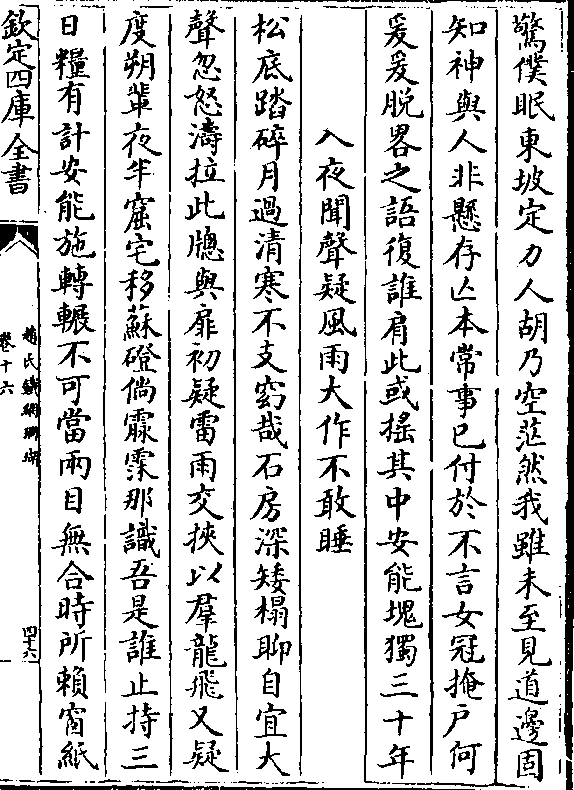 驚僕眠東坡定力人胡乃空茫然我雖未至見道邊固
知神與人非懸存亾本常事已付於不言女冠掩户何
爰爰脱畧之語復誰肩此或搖其中安能塊獨三十年
入夜聞聲疑風雨大作不敢睡
松底踏碎月過清寒不支窈哉石房深矮榻聊自宜大
聲忽怒濤拉此牕與扉初疑雷雨交挾以羣龍飛又疑
度朔輩夜半窟宅移蘇磴倘霡霂那識吾是誰止持三
日糧有計安能施轉輾不可當兩目無合時所賴窗紙
欽定四庫全書
趙氏鐵網珊瑚
卷十六
四十六